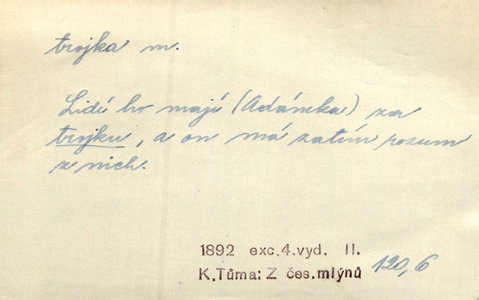 trojka m.
Lidé ho mají (Adámka) za
trojku, a on má zatím rozum
z nich.
1892 exc.4.vyd. II.
K.Tůma: Z čes.mlýnů 120,6